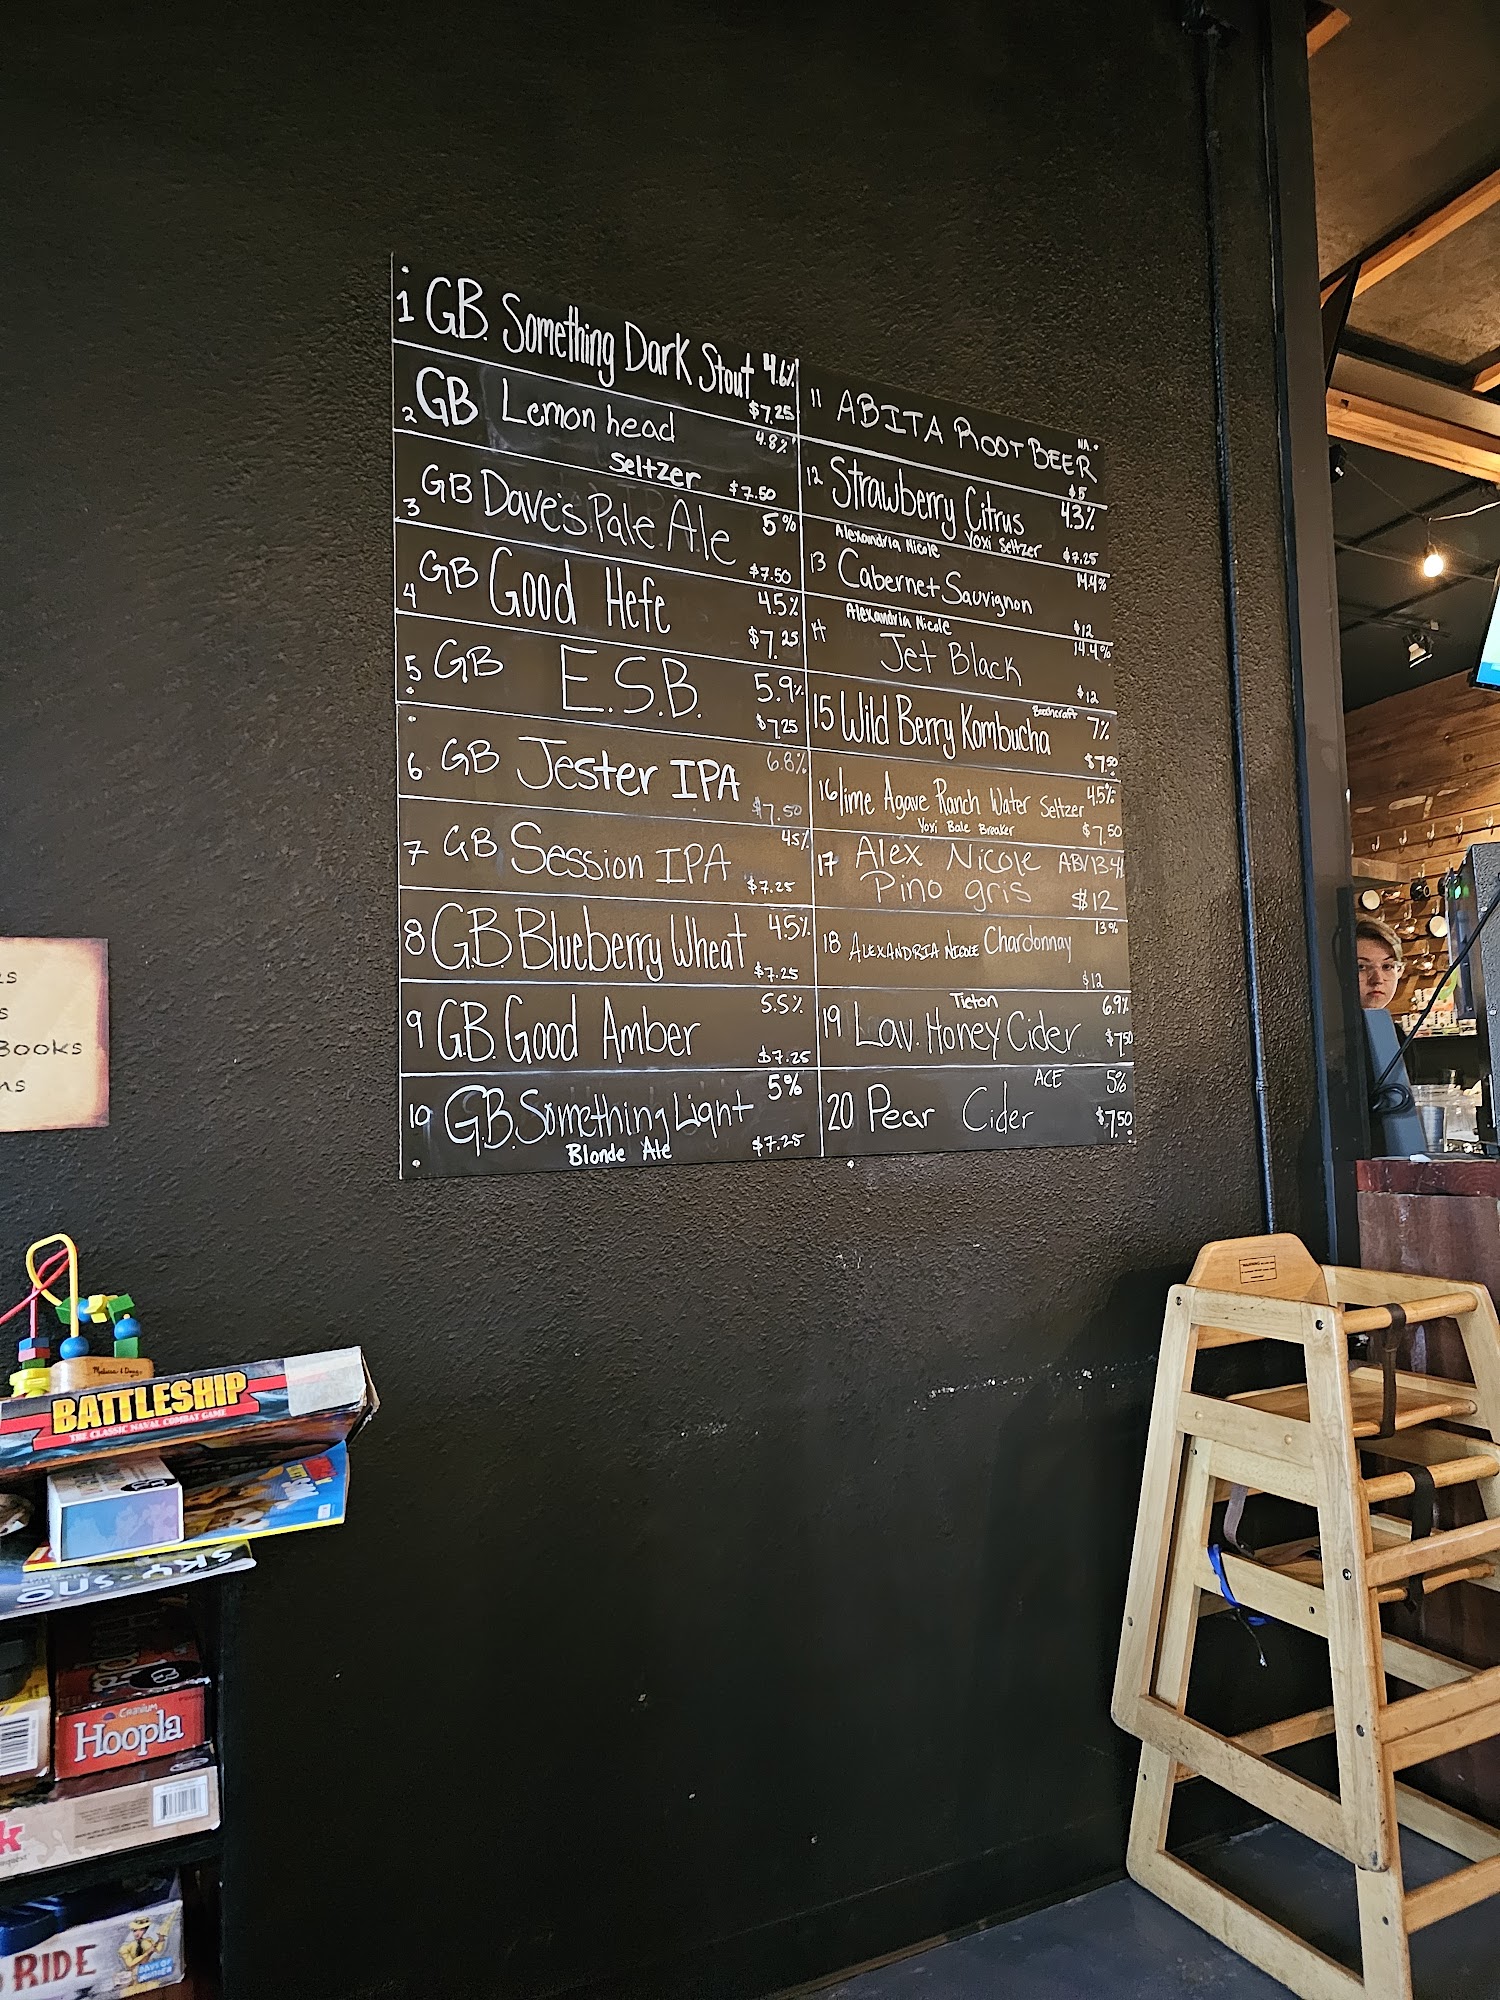 1 G.B. Something Dark Stout 4.6%
$7.25
2 GB Lemon head 4.8%
Seltzer $7.50
3 GB Dave's Pale Ale 5%
$7.50
4 GB Good Hefe 4.5%
$7.25
5 GB E.S.B. 5.9%
$7.25
6 GB Jester IPA 6.8%
$7.50
7 GB Session IPA 4.5%
$7.25
8 G.B. Blueberry Wheat 4.5%
$7.25
9 G.B. Good Amber 5.5%
$7.25
10 G.B. Something Light 5%
Blonde Ale $7.25
11 ABITA ROOT BEER NA.
$5
12 Strawberry Citrus 4.3%
Yoxi Seltzer $7.25
Alexandria Nicole 14.4%
13 Cabernet Sauvignon
$12
Alexandria Nicole 14.4%
14 Jet Black
$12
15 Wild Berry Kombucha Boochcraft 7%
$7.50
16 lime Agave Ranch Water Seltzer 4.5%
Yoxi Bale Breaker $7.50
17 Alex Nicole ABV 13.4%
Pino gris $12
18 ALEXANDRIA NICOLE Chardonnay 13%
$12
Tieton 6.9%
19 Lav. Honey Cider $7.50
ACE 5%
20 Pear Cider $7.50
Books
BATTLESHIP
THE CLASSIC NAVAL COMBAT GAME
Melissa & Doug
SKY
CRANIUM
Hoopla
RIDE
DAYS OF WONDER
WARNING